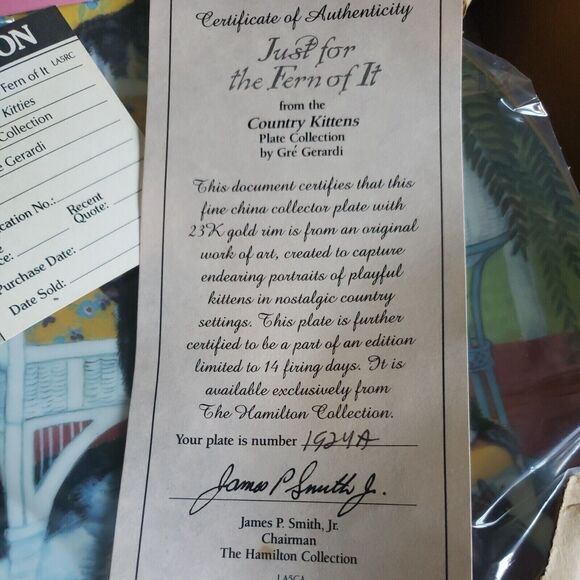 ON
Fern of It LASRC
Kitties
Collection
Gerardi
cation No.:
Recent
Quote:
Purchase Date:
Date Sold:
Certificate of Authenticity
Just for
the Fern of It
from the
Country Kittens
Plate Collection
by Gré Gerardi
This document certifies that this
fine china collector plate with
23K gold rim is from an original
work of art, created to capture
endearing portraits of playful
kittens in nostalgic country
settings. This plate is further
certified to be a part of an edition
limited to 14 firing days. It is
available exclusively from
The Hamilton Collection.
Your plate is number 1924A
James P Smith Jr.
James P. Smith, Jr.
Chairman
The Hamilton Collection
LASCA